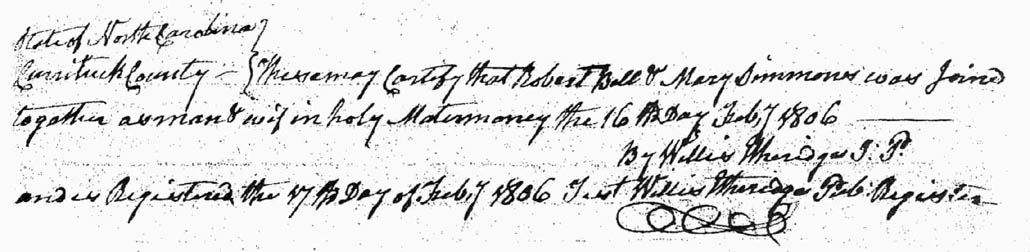 State of North Carolina }
Currituck County — { These may Cartify that Robert Bell & Mary Simmones was Joined
together as man & wif in holy Matermoney the 16th Day Feby 1806
By Willis Etheridge J. P.
and is Registered the 17th Day of Feby 1806 Test Willis Etheridge Pub. Register